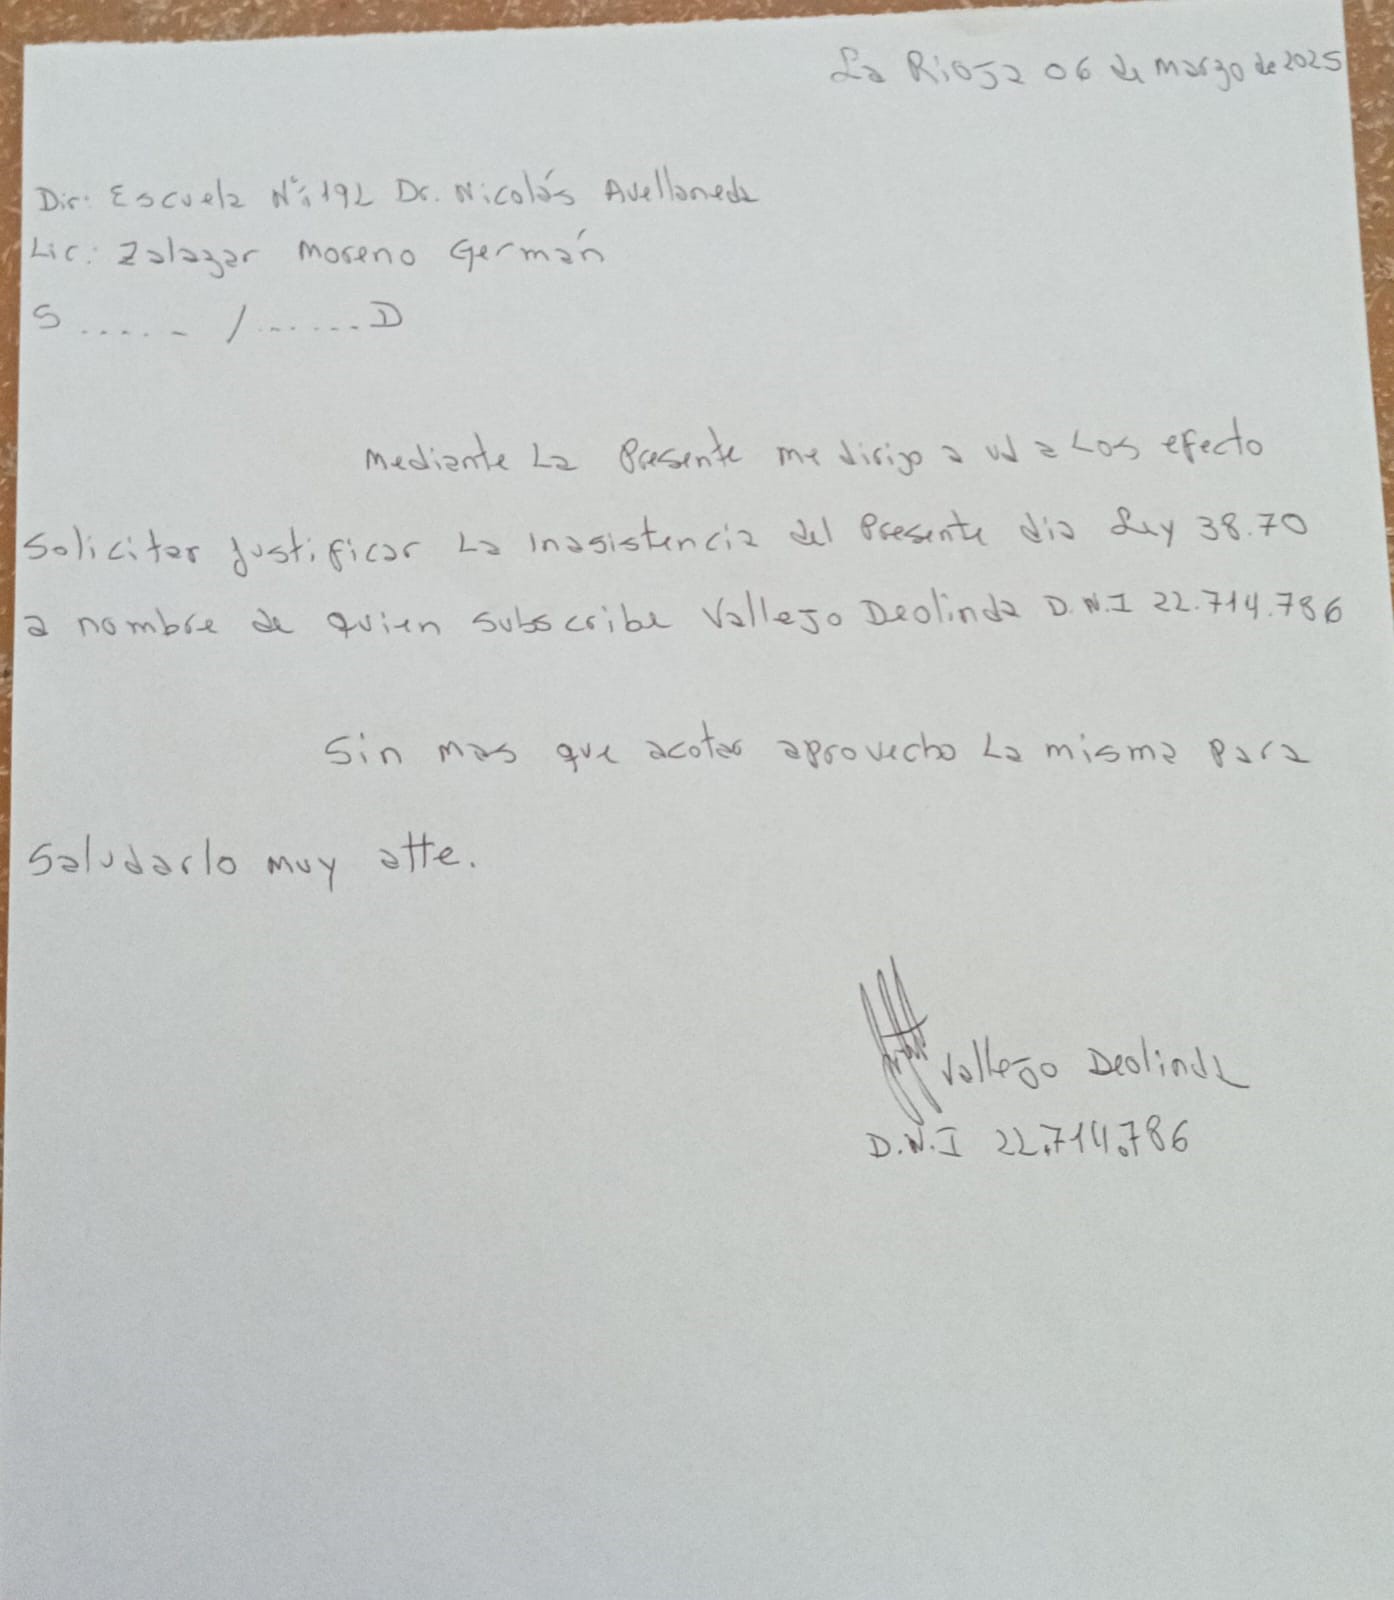 La Rioja 06 de marzo de 2025
Dir: Escuela N°: 192 Dr. Nicolás Avellaneda
Lic: Zalazar Moreno Germán
S ..... / ...... D
Mediante La Presente me dirigo a ud a Los efecto
Solicitar justificar La Inasistencia del Presente dia Ley 38.70
a nombre de quien subscribe Vallejo Deolinda D.N.I 22.714.786
Sin mas que acotar aprovecho La misma para
Saludarlo muy atte.
Vallejo Deolinda
D.N.I 22.714.786